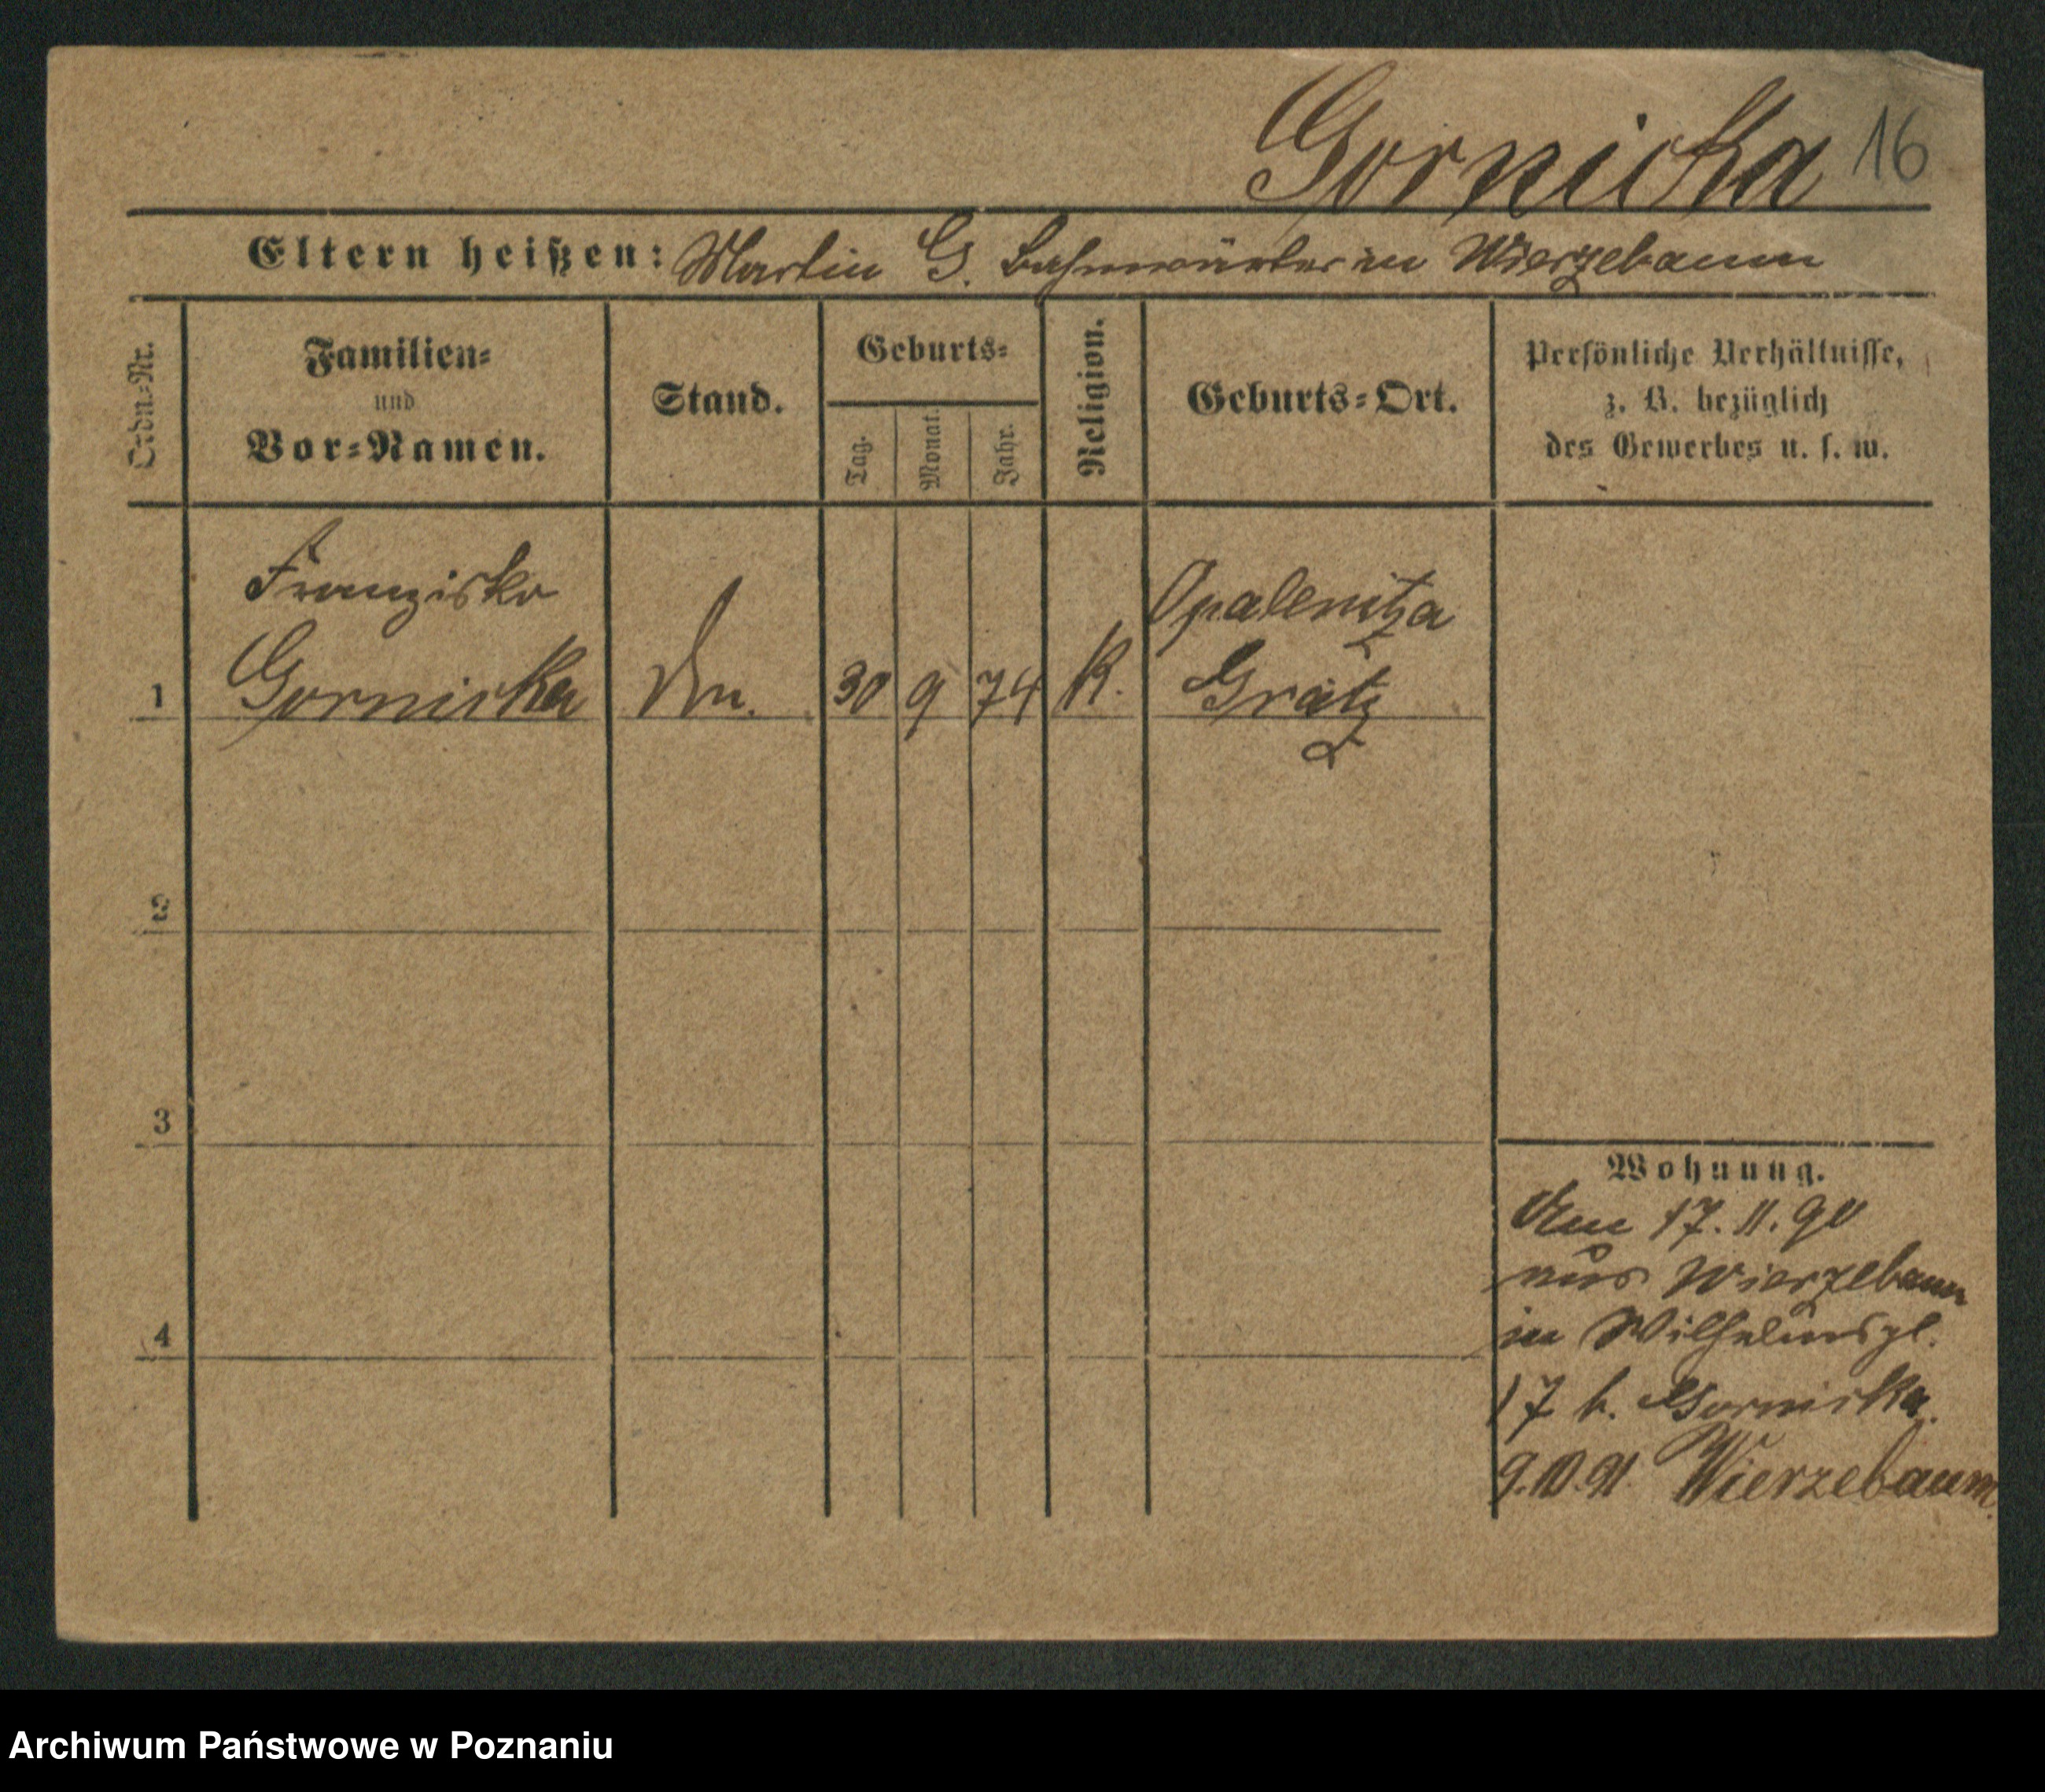 Gornicka 16
Eltern heißen: Martin G. Bahnwärter in Wierzebaum
Ordn.-Nr.
Familien-
und
Vor-Namen.
Stand.
Geburts-
Tag.
Monat.
Jahr.
Religion.
Geburts-Ort.
Persönliche Verhältnisse,
z. B. bezüglich
des Gewerbes u. s. w.
Franziska
Opalenitza
1 Gornicka 30 9 74 K. Grätz
2
3
Wohnung.
Am 17. 11. 90
aus Wierzebaum
in Wilhelmspl.
4
17 b. Gornicka.
9.10.91. Wierzebaum.
Archiwum Państwowe w Poznaniu